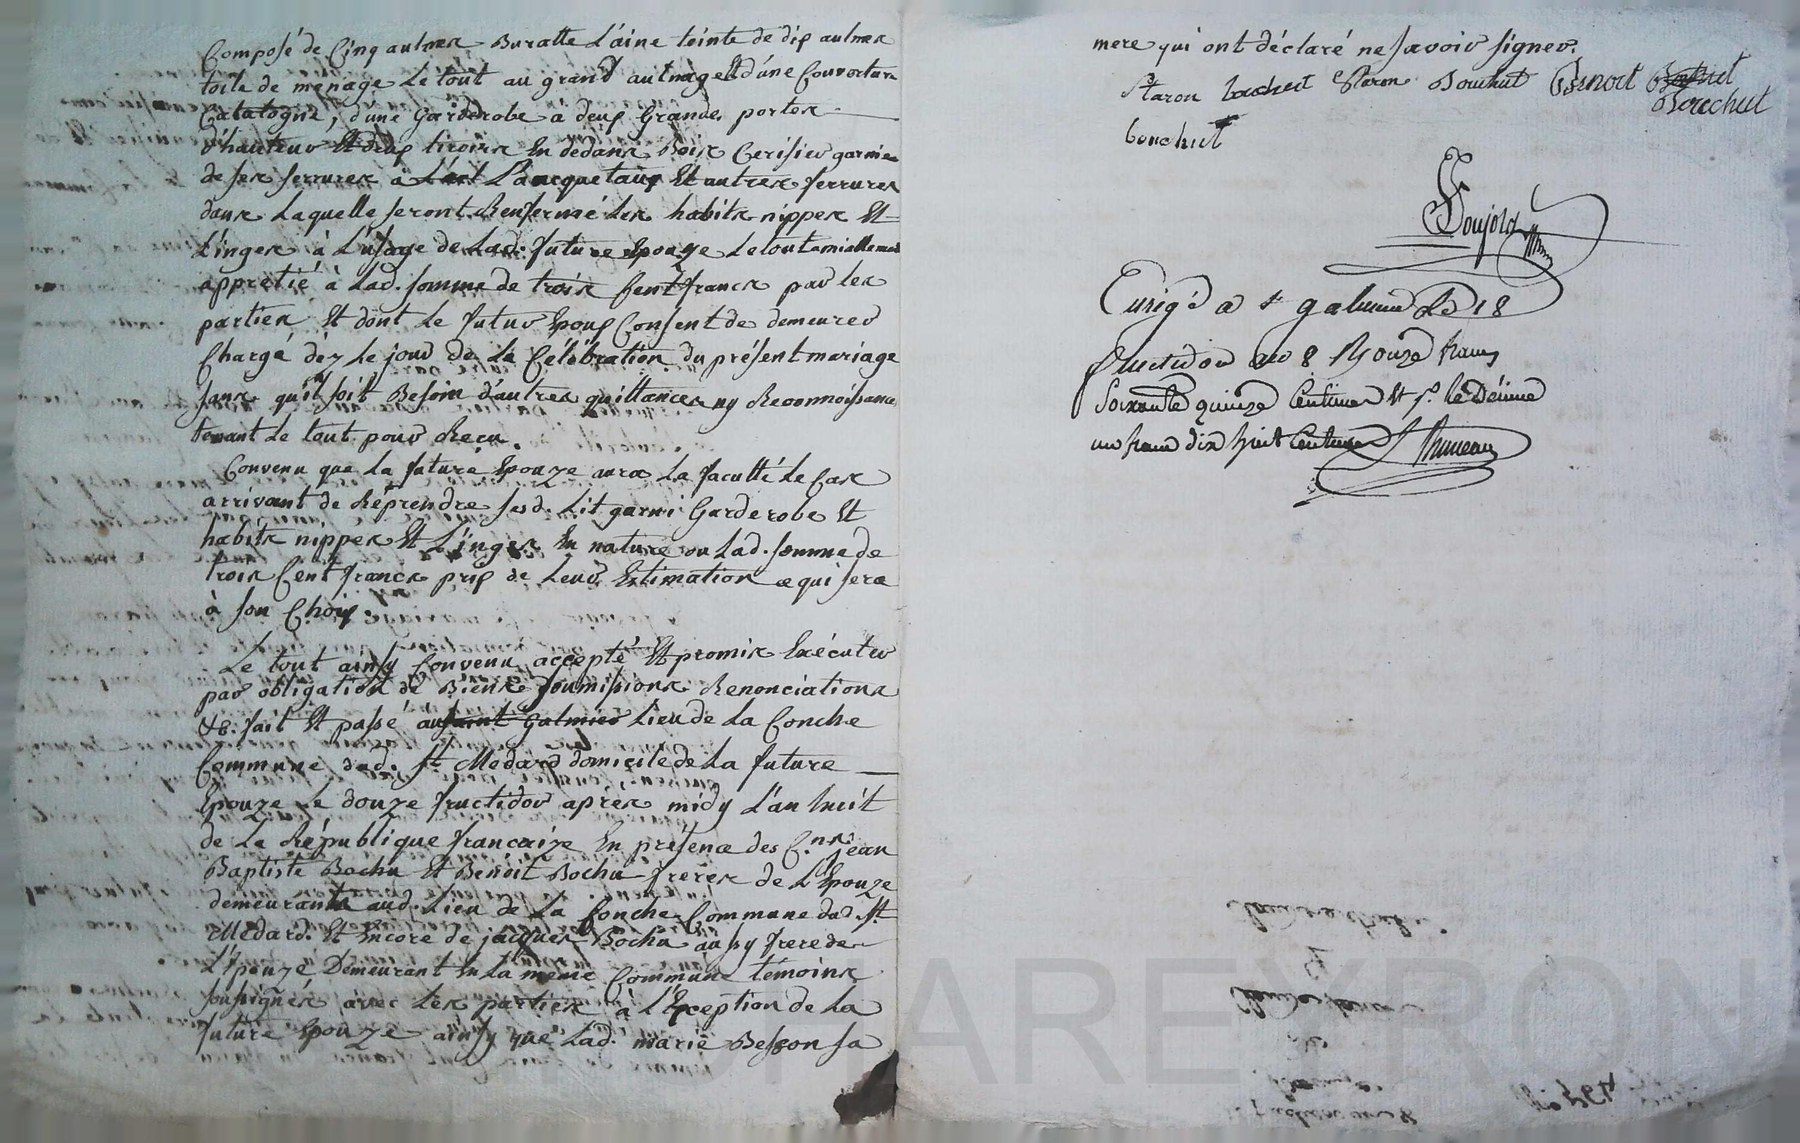 Composé de Cinq aulnes Buratte Laine teinte de dix aulnes
toile de ménage Le tout au grand aulnage Et d'une Couverture
Catalogne, d'une Garderobe à deux Grandes portes
d'hauteur Et deux tiroirs En dedans Bois Cerisier garnie
de ses serrures à Bacquetaux Et autres ferrures
dans Laquelle seront Renfermé Les habits nippes Et
Linges à L'usage de Lad. future Epouze Le tout amiablement
apprétié à Lad. somme de trois Cent francs par les
parties Et dont Le futur Epoux Consent de demeurer
Chargé déz Le jour de La Célébration du présent mariage
sans qu'il soit Besoin d'autres quittances ny Reconnoissance
tenant Le tout pour Recu.
Convenu que La future Epouze aura La faculté Le Cas
arrivant de Réprendre sesd. Lit garni Garderobe Et
habits nippes Et Linges En nature ou Lad. somme de
trois Cent francs prix de Leur Estimation ce qui sera
à son Choix.
Le tout ainsy Convenu accepté Et promis Exécuter
par obligation de Biens soumissions Renonciations
&c. fait Et passé au Lieu de La Conche
Commune dud. St. Médard domicile de La future
Epouze Le douze fructidor après midy L'an huit
de La République française En présence des C.ns Jean
Baptiste Bochu Et Benoit Bochu freres de L'Epouze
demeurants aud. Lieu de La Conche Commune dud. St.
Médard. Et Encore de jacques Bochu aussy frere de
L'Epouze Demeurant En La même Commune témoins
soussignés avec Les parties à L'Exception de La
future Epouze ainsy que Lad. marie Besson sa
mere qui ont déclaré ne savoir signer.
Staron bouchut Staron Bouchut Benoit
Bouchut
bouchut
Poujold
Enrigé a St galmier Le 18
fructidor an 8 R onze francs
soixante quinze Centimes Et pr. le Décime
un franc dix huit Centimes
SHAREYRON